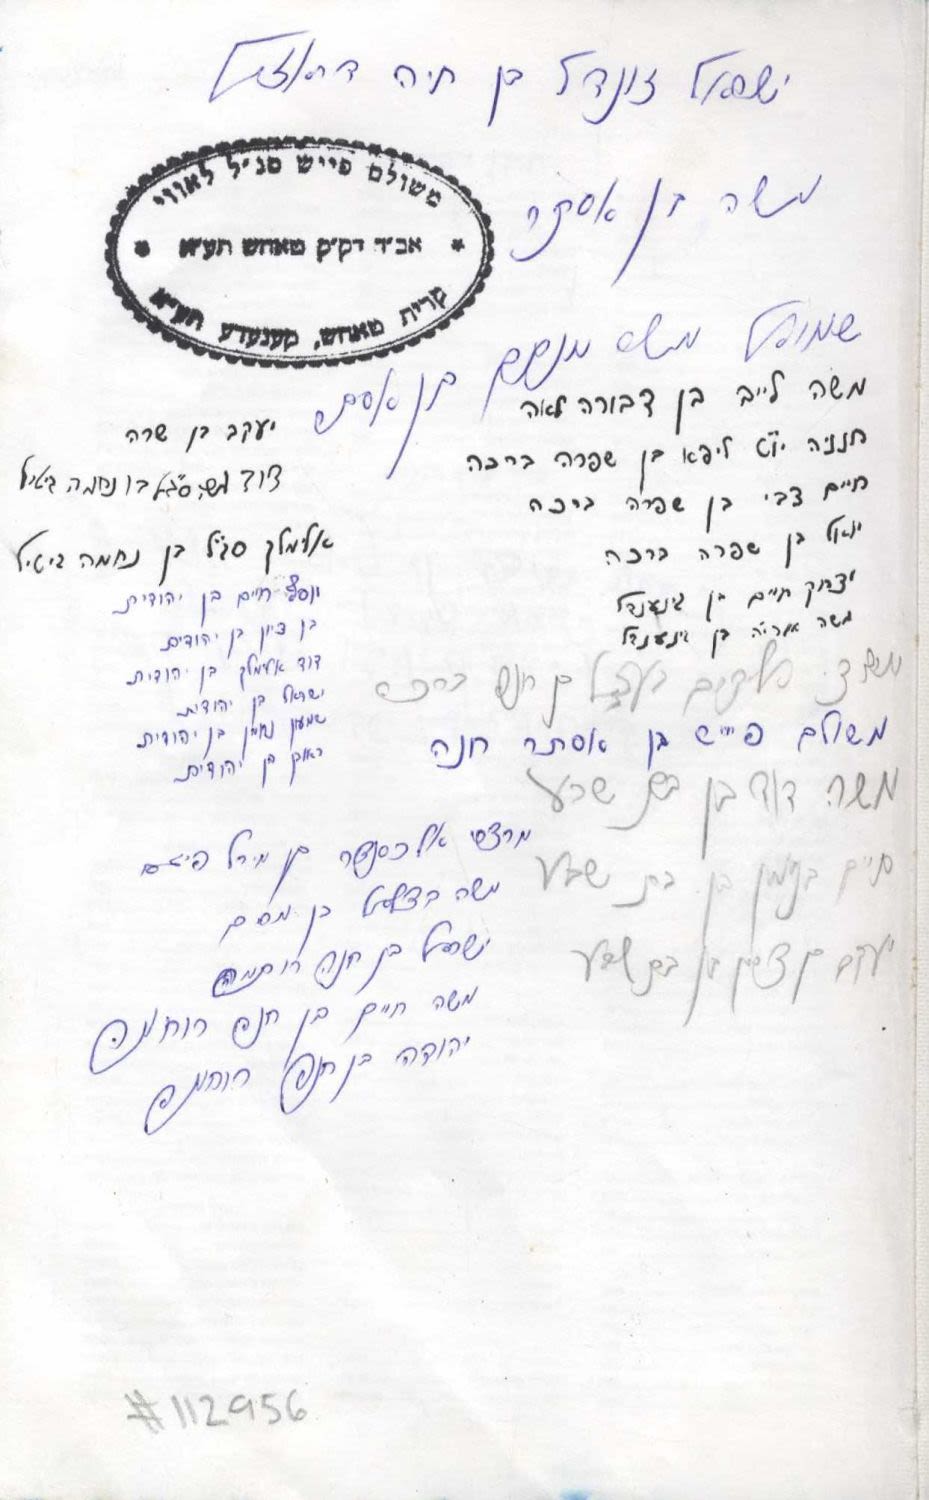 ישראל זונדל בן חיה דראזיל
משולם פייש סג״ל לאווי
אב״ד דק״ק טאהש תע״א
קרית טאהש, קענעדע תע״א
משה בן אסתר
שמואל משה מנחם בן אסתר
משה לייב בן דבורה לאה
חנניה יו״ט ליפא בן שפרה ברכה
חיים צבי בן שפרה ברכה
יואל בן שפרה ברכה
יצחק חיים בן גינענדל
משה ארי׳ה בן גינענדל
יעקב בן שרה
דוד משה סג״ל בן נחמה גיטיל
אלימלך סג״ל בן נחמה גיטיל
יוסף חיים בן יהודית
בן ציון בן יהודית
דוד אלימלך בן יהודית
ישראל בן יהודית
שמעון נתן בן יהודית
ראובן בן יהודית
בן חנה ברכה
משולם פייש בן אסתר חנה
משה דוד בן בת שבע
חיים בנימין בן בת שבע
יעקב בן ציון בן בת שבע
מרדכי אלכסנדר בן מירל
משה בצלאל בן מרים
ישראל בן חנה רוחמה
משה חיים בן חנה רוחמה
יהודה בן חנה רוחמה
#112956